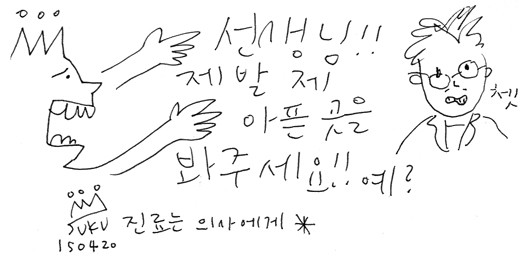 선생님!!
제발 제
아픈 곳을
봐주세요!! 예?
SUKU 진료는 의사에게 *
150420